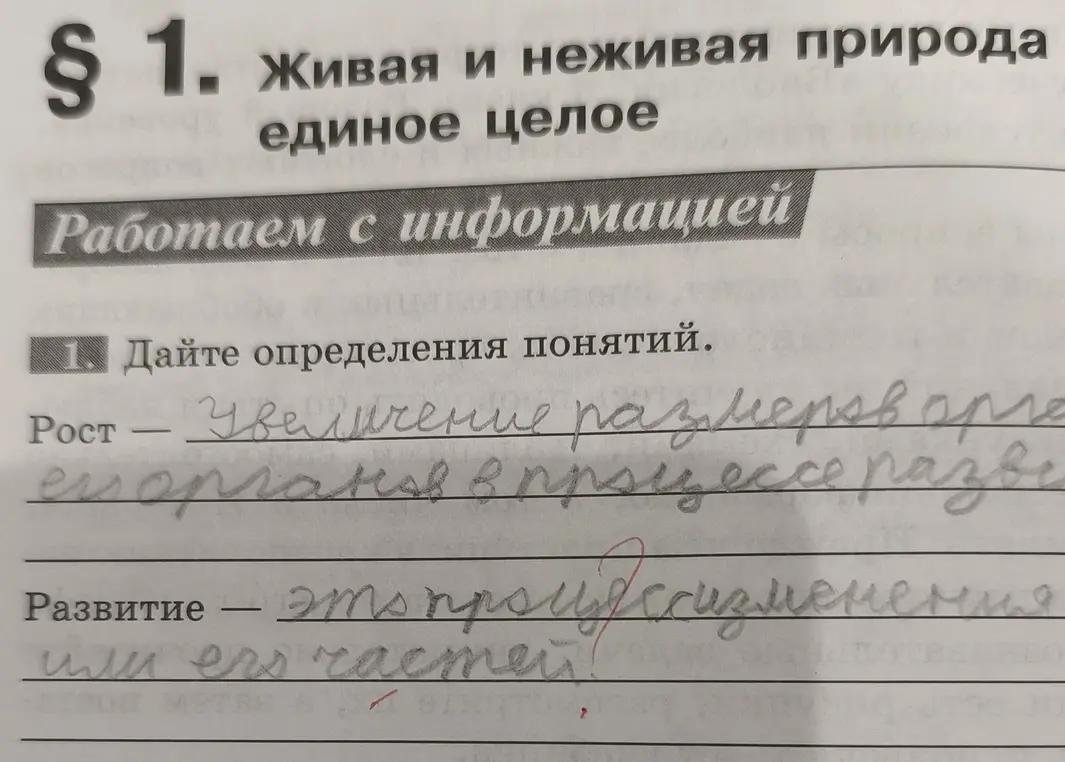 § 1. Живая и неживая природа
единое целое
Работаем с информацией
1. Дайте определения понятий.
Рост — Увеличение размеров орга
его органов в процессе разви
Развитие — это процесс изменения
или его частей.